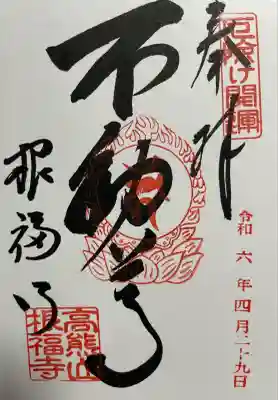 厄除け開運
奉拝
令和六年四月二十九日
不動尊
根福寺
高熊山
根福寺